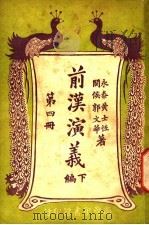 永泰黄士恒
閩侯郭文華
著
前漢演義
下編
第四冊